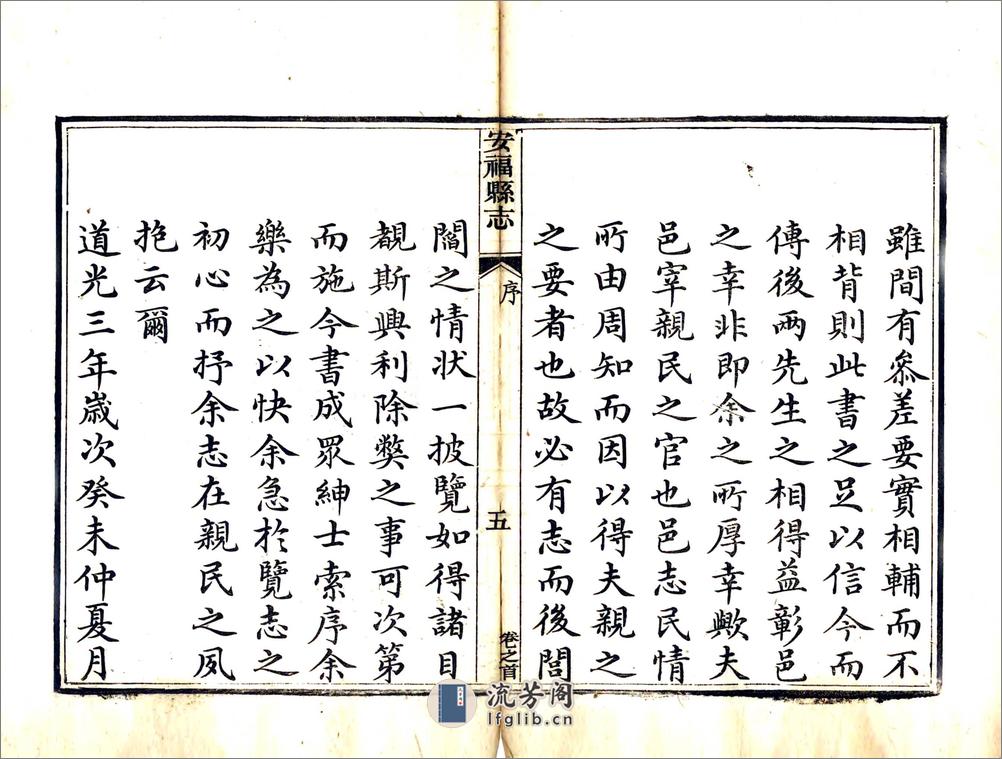 雖間有叅差要實相輔而不
相背則此書之足以信今而
傳後兩先生之相得益彰邑
之幸非即余之所厚幸歟夫
邑宰親民之官也邑志民情
所由周知而因以得夫親之
之要者也故必有志而後閭
安福縣志
序
五
卷之首
閻之情狀一披覽如得諸目
覩斯興利除獘之事可次第
而施今書成眾紳士索序余
樂為之以快余急於覽志之
初心而抒余志在親民之夙
抱云爾
道光三年歲次癸未仲夏月
流芳阁
lfglib.cn